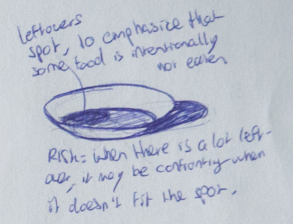 leftovers
spot, to emphasize that
some food is intentionally
not eaten
RISK = when there is a lot left-
over, it may be confronting when
it doesn't fit the spot.